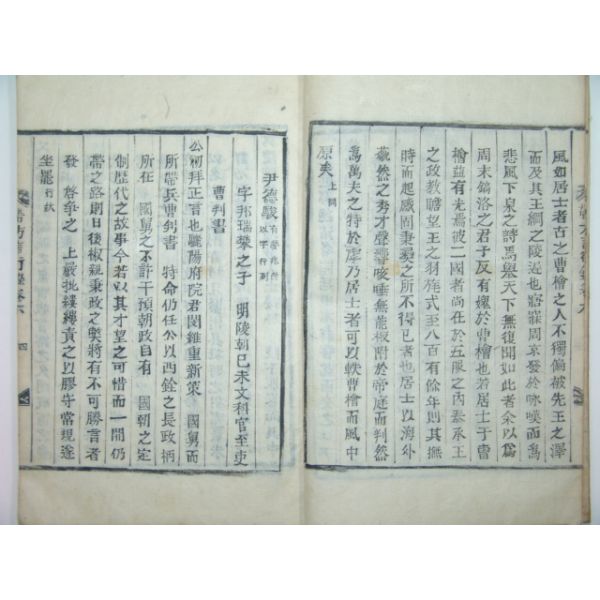 風如居士者古之曹檜之人不獨偏被先王之澤
而及其王綱之陵遲也寤寐周京發於咏嘆而爲
悲風下泉之詩焉與天下無復聞如此者余以爲
周末鎬洛之君子反有愧於曹檜也若居士于曹
檜益有光焉彼二國者尚在於五服之內素承王
之政教瞻望王之羽旄式至八百有餘年則其撫
時而起感固秉彝之所不得已者也居士以海外
藐然之
爲萬夫之特於
原矣
上同
尹德駿
字邦瑞㷜之子 明陵朝己未文科官至吏
曹判書
公初拜正言也驪陽府院君閔維重新策 國舅而
所帶兵曹判書 特命仍任公以西銓之長政柄
所在 國舅之不許干預朝政自有 國朝之定
制歷代之故事今若以其才望之可惜而一開仍
帶之路則日後椒親秉政之弊將有不可勝言者
發啓爭之 上嚴批縷縷責之以膠守常規遂
坐罷
行狀
四